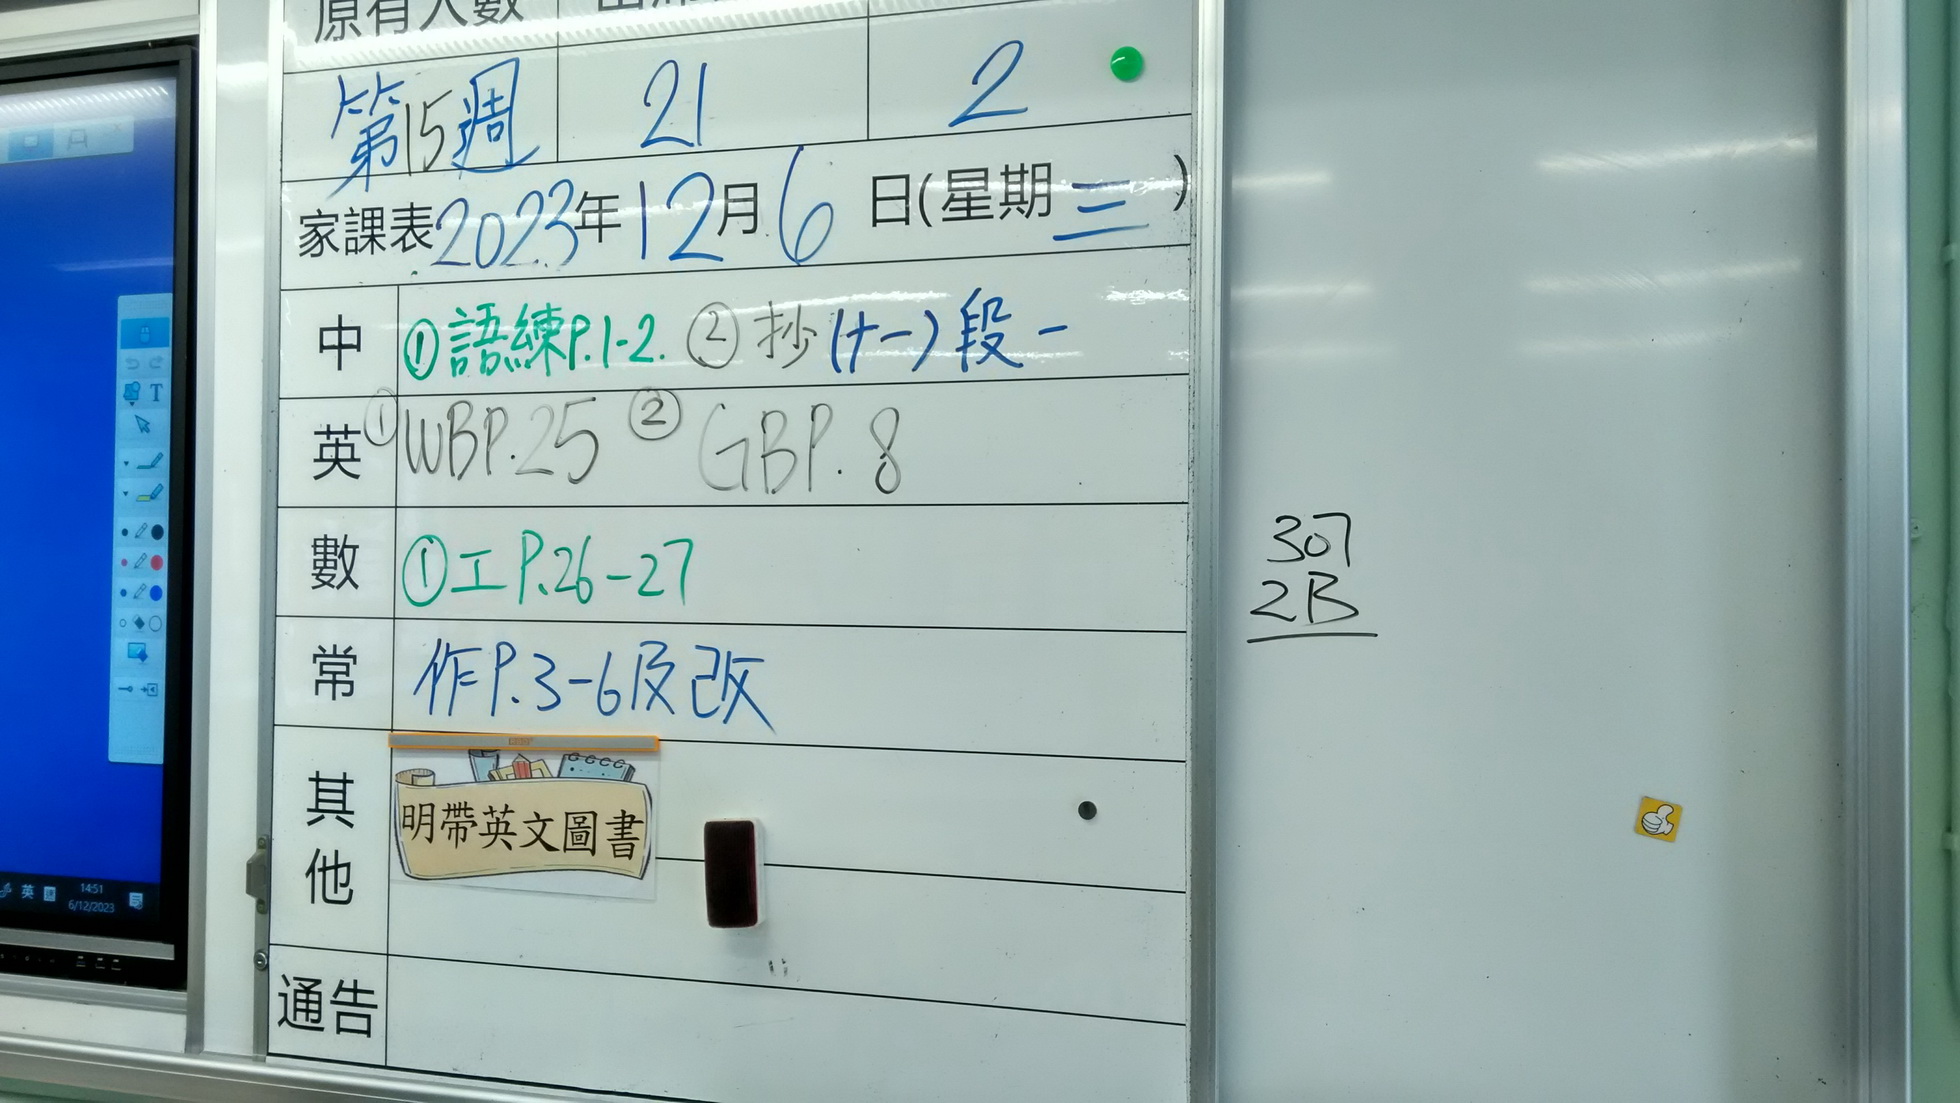 原有人數
第15週 21 2
家課表2023年12月6日(星期三)
中 ①語練P.1-2. ②抄(十一)段一
英 ①WBP.25 ②GBP.8
數 ①工P.26-27
常 作P.3-6及改
其他 明帶英文圖書
通告
307
2B
T
英
14:51
6/12/2023